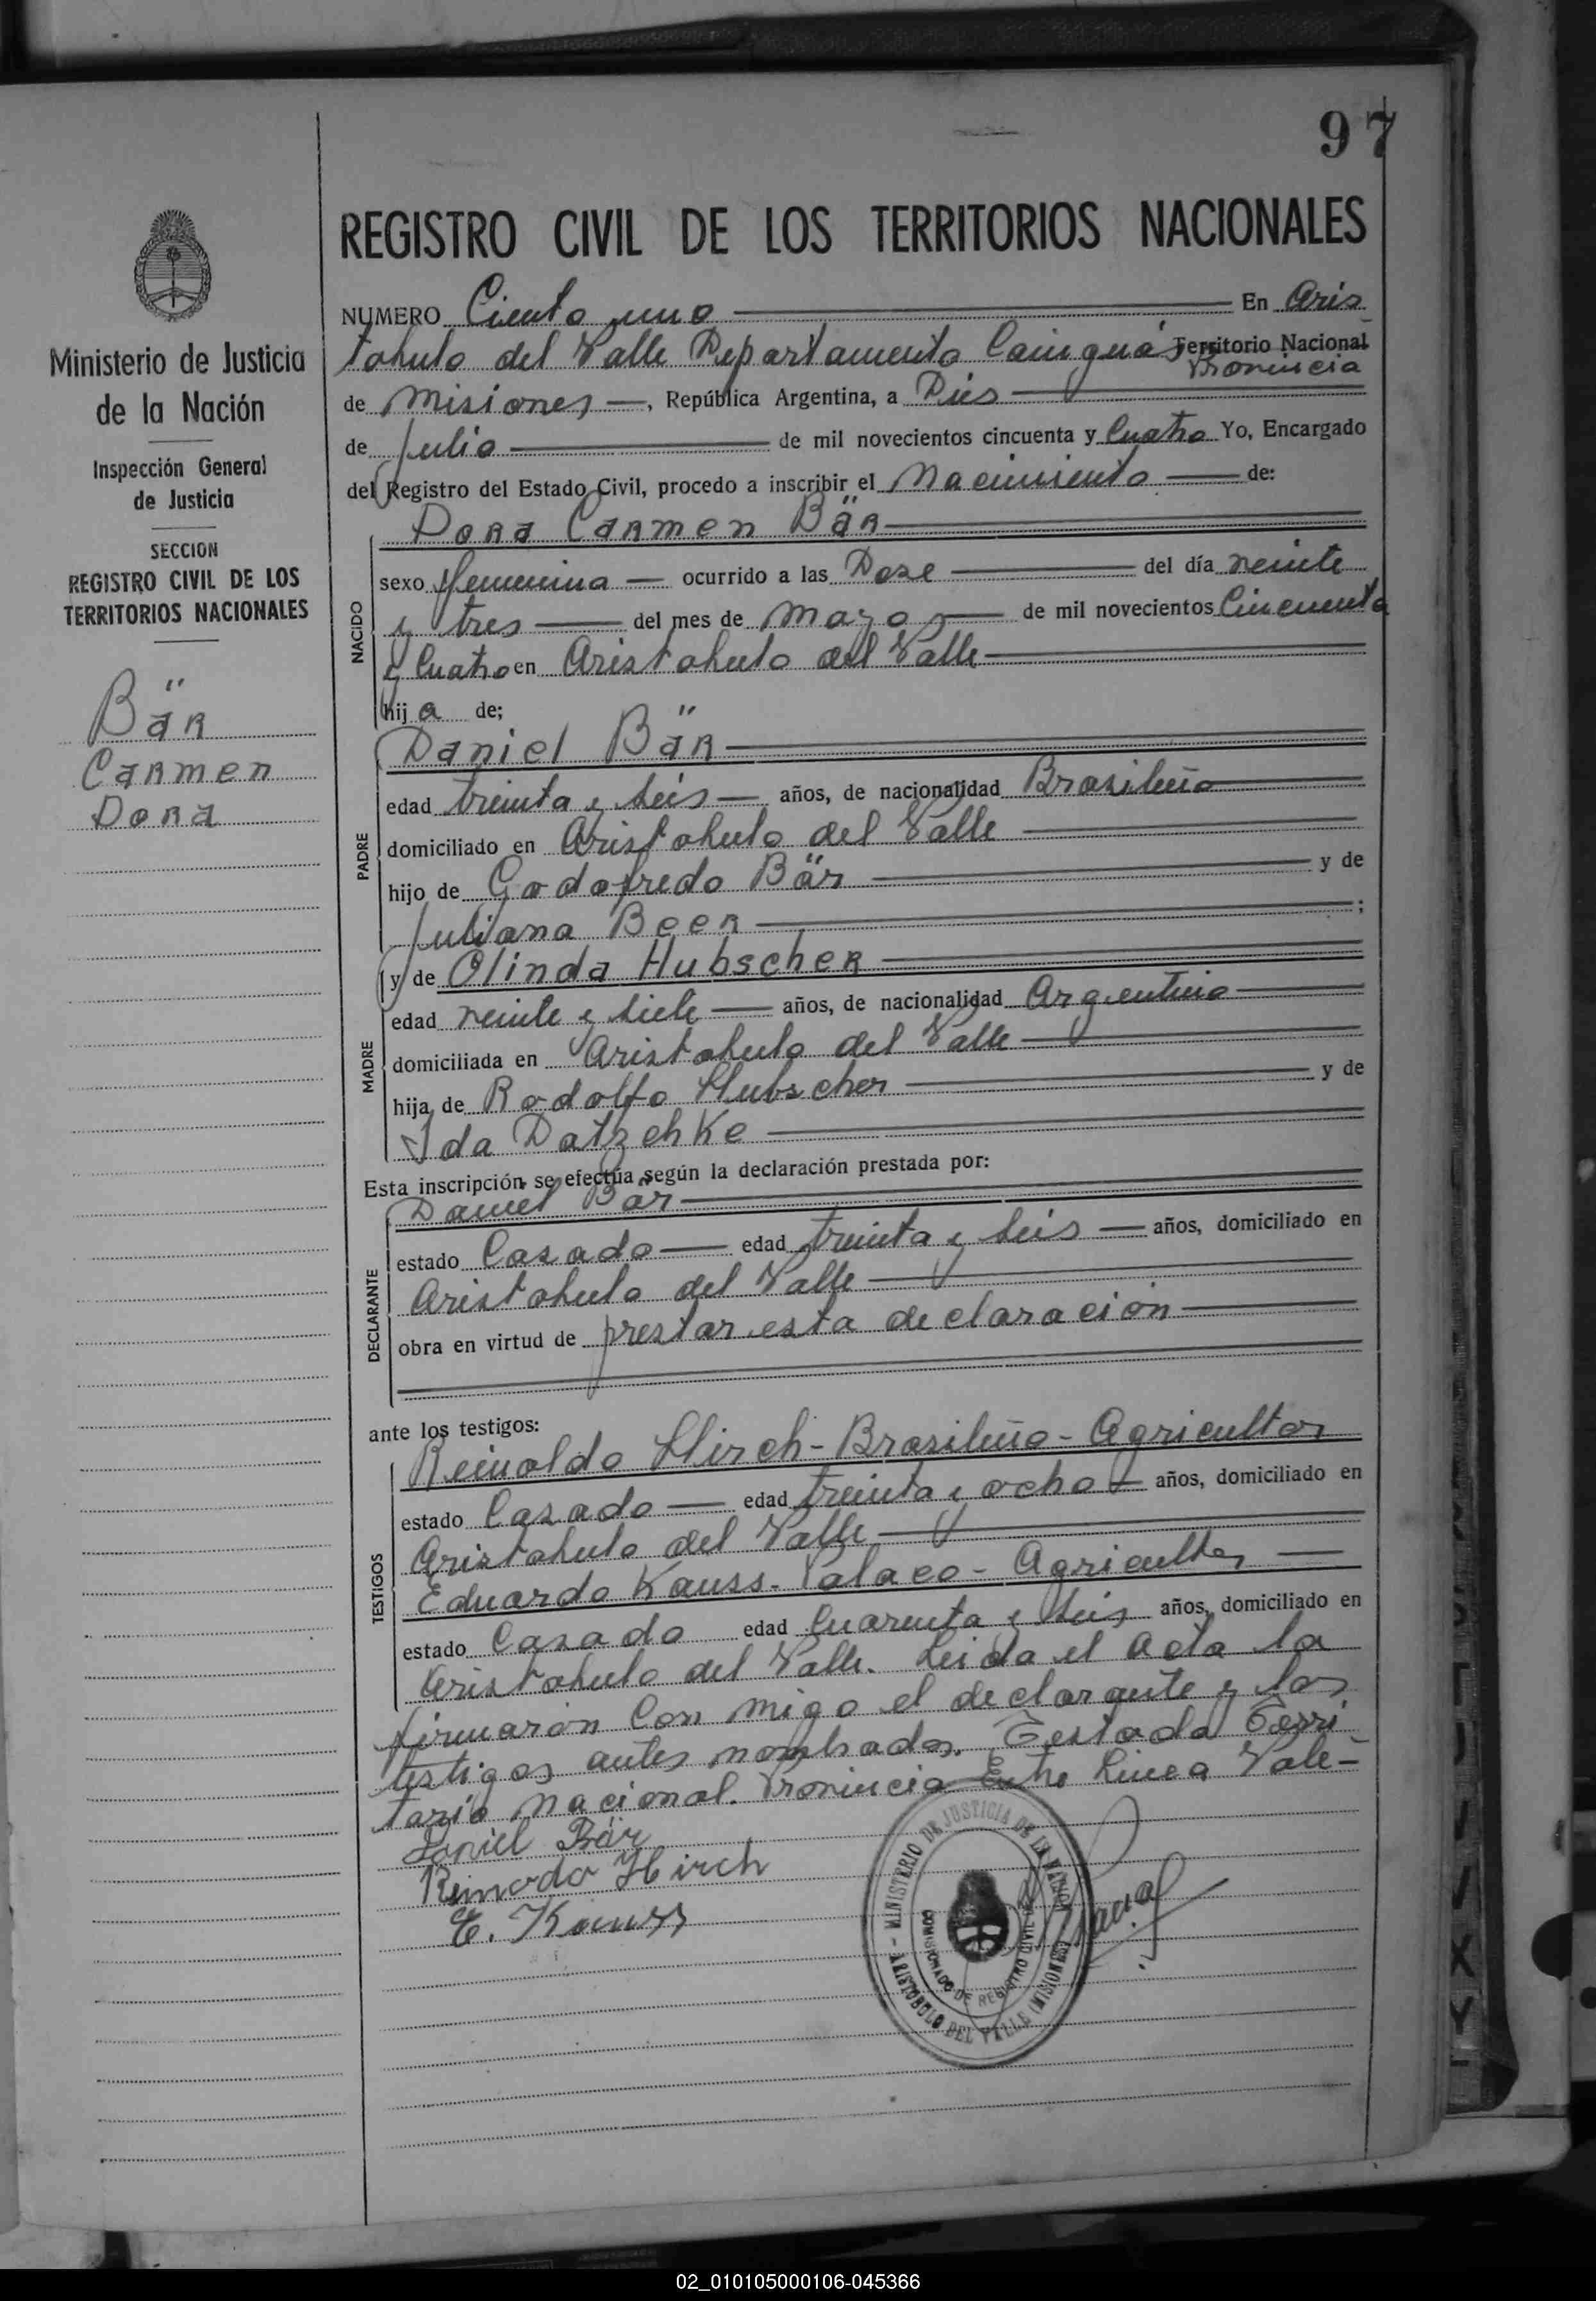 97
REGISTRO CIVIL DE LOS TERRITORIOS NACIONALES
Ministerio de Justicia
de la Nación
Inspección General
de Justicia
SECCION
REGISTRO CIVIL DE LOS
TERRITORIOS NACIONALES
Bär
Carmen
Dora
NUMERO Ciento uno En Aris
tobulo del Valle Departamento Cainguás Territorio Nacional
Provincia
de Misiones, República Argentina, a Dies
de Julio de mil novecientos cincuenta y Cuatro Yo, Encargado
del Registro del Estado Civil, procedo a inscribir el Nacimiento de:
Dora Carmen Bär
NACIDO
sexo femenina ocurrido a las Dose del día veinte
y tres del mes de Mayo de mil novecientos Cincuenta
y Cuatro en Aristobulo del Valle
hija de;
Daniel Bär
PADRE
edad treinta y seis años, de nacionalidad Brasileño
domiciliado en Aristobulo del Valle
hijo de Godofredo Bär y de
Juliana Beer;
y de Olinda Hubscher
MADRE
edad veinte y siete años, de nacionalidad Argentina
domiciliada en Aristobulo del Valle
hija de Rodolfo Hubscher y de
Ida Datzehke
Esta inscripción se efectúa según la declaración prestada por:
Daniel Bär
DECLARANTE
estado Casado edad treinta y seis años, domiciliado en
Aristobulo del Valle
obra en virtud de prestar esta declaración
ante los testigos:
Reinoldo Hirch - Brasileño - Agricultor
TESTIGOS
estado Casado edad treinta y ocho años, domiciliado en
Aristobulo del Valle
Eduardo Kauss - Polaco - Agricultor
estado Casado edad Cuarenta y seis años, domiciliado en
Aristobulo del Valle. Leida el Acta la
firmaron Con migo el declarante y los
testigos antes nombrados. Testado Terri
torio Nacional. Provincia Entre Linea Vale-
Daniel Bär
Reinodo Hirch
E. Kauss
MINISTERIO DE JUSTICIA DE LA NACION
COMISIONADO DE REGISTRO CIVIL
ARISTOBULO DEL VALLE (MISIONES)
02_010105000106-045366